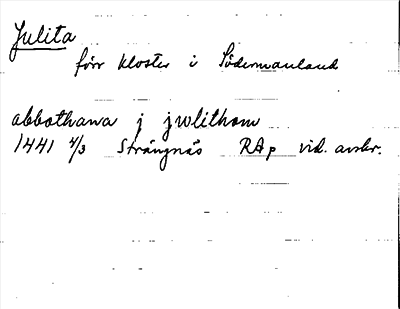 Julita
förr kloster i Södermanland
abbothana j jwlithom
1441 4/3 Strängnäs RAp vid. avskr.